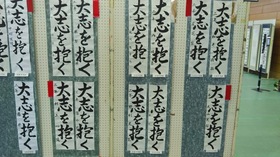 大志を抱く
大志を抱く
大志を抱く
大志を抱く
大志を抱く
大志を抱く
大志を抱く
大志を抱く
大志を抱く
大志を抱く
大志を抱く
大志を抱く